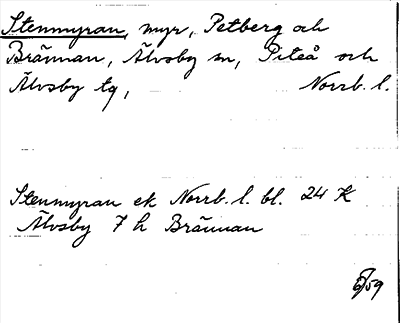 Stenmyran, myr, Petberg och
Brännan, Älvsby sn, Piteå och
Älvsby tg, Norrb. l.
Stenmyran ek Norrb. l. bl. 24 K
Älvsby 7 h Brännan